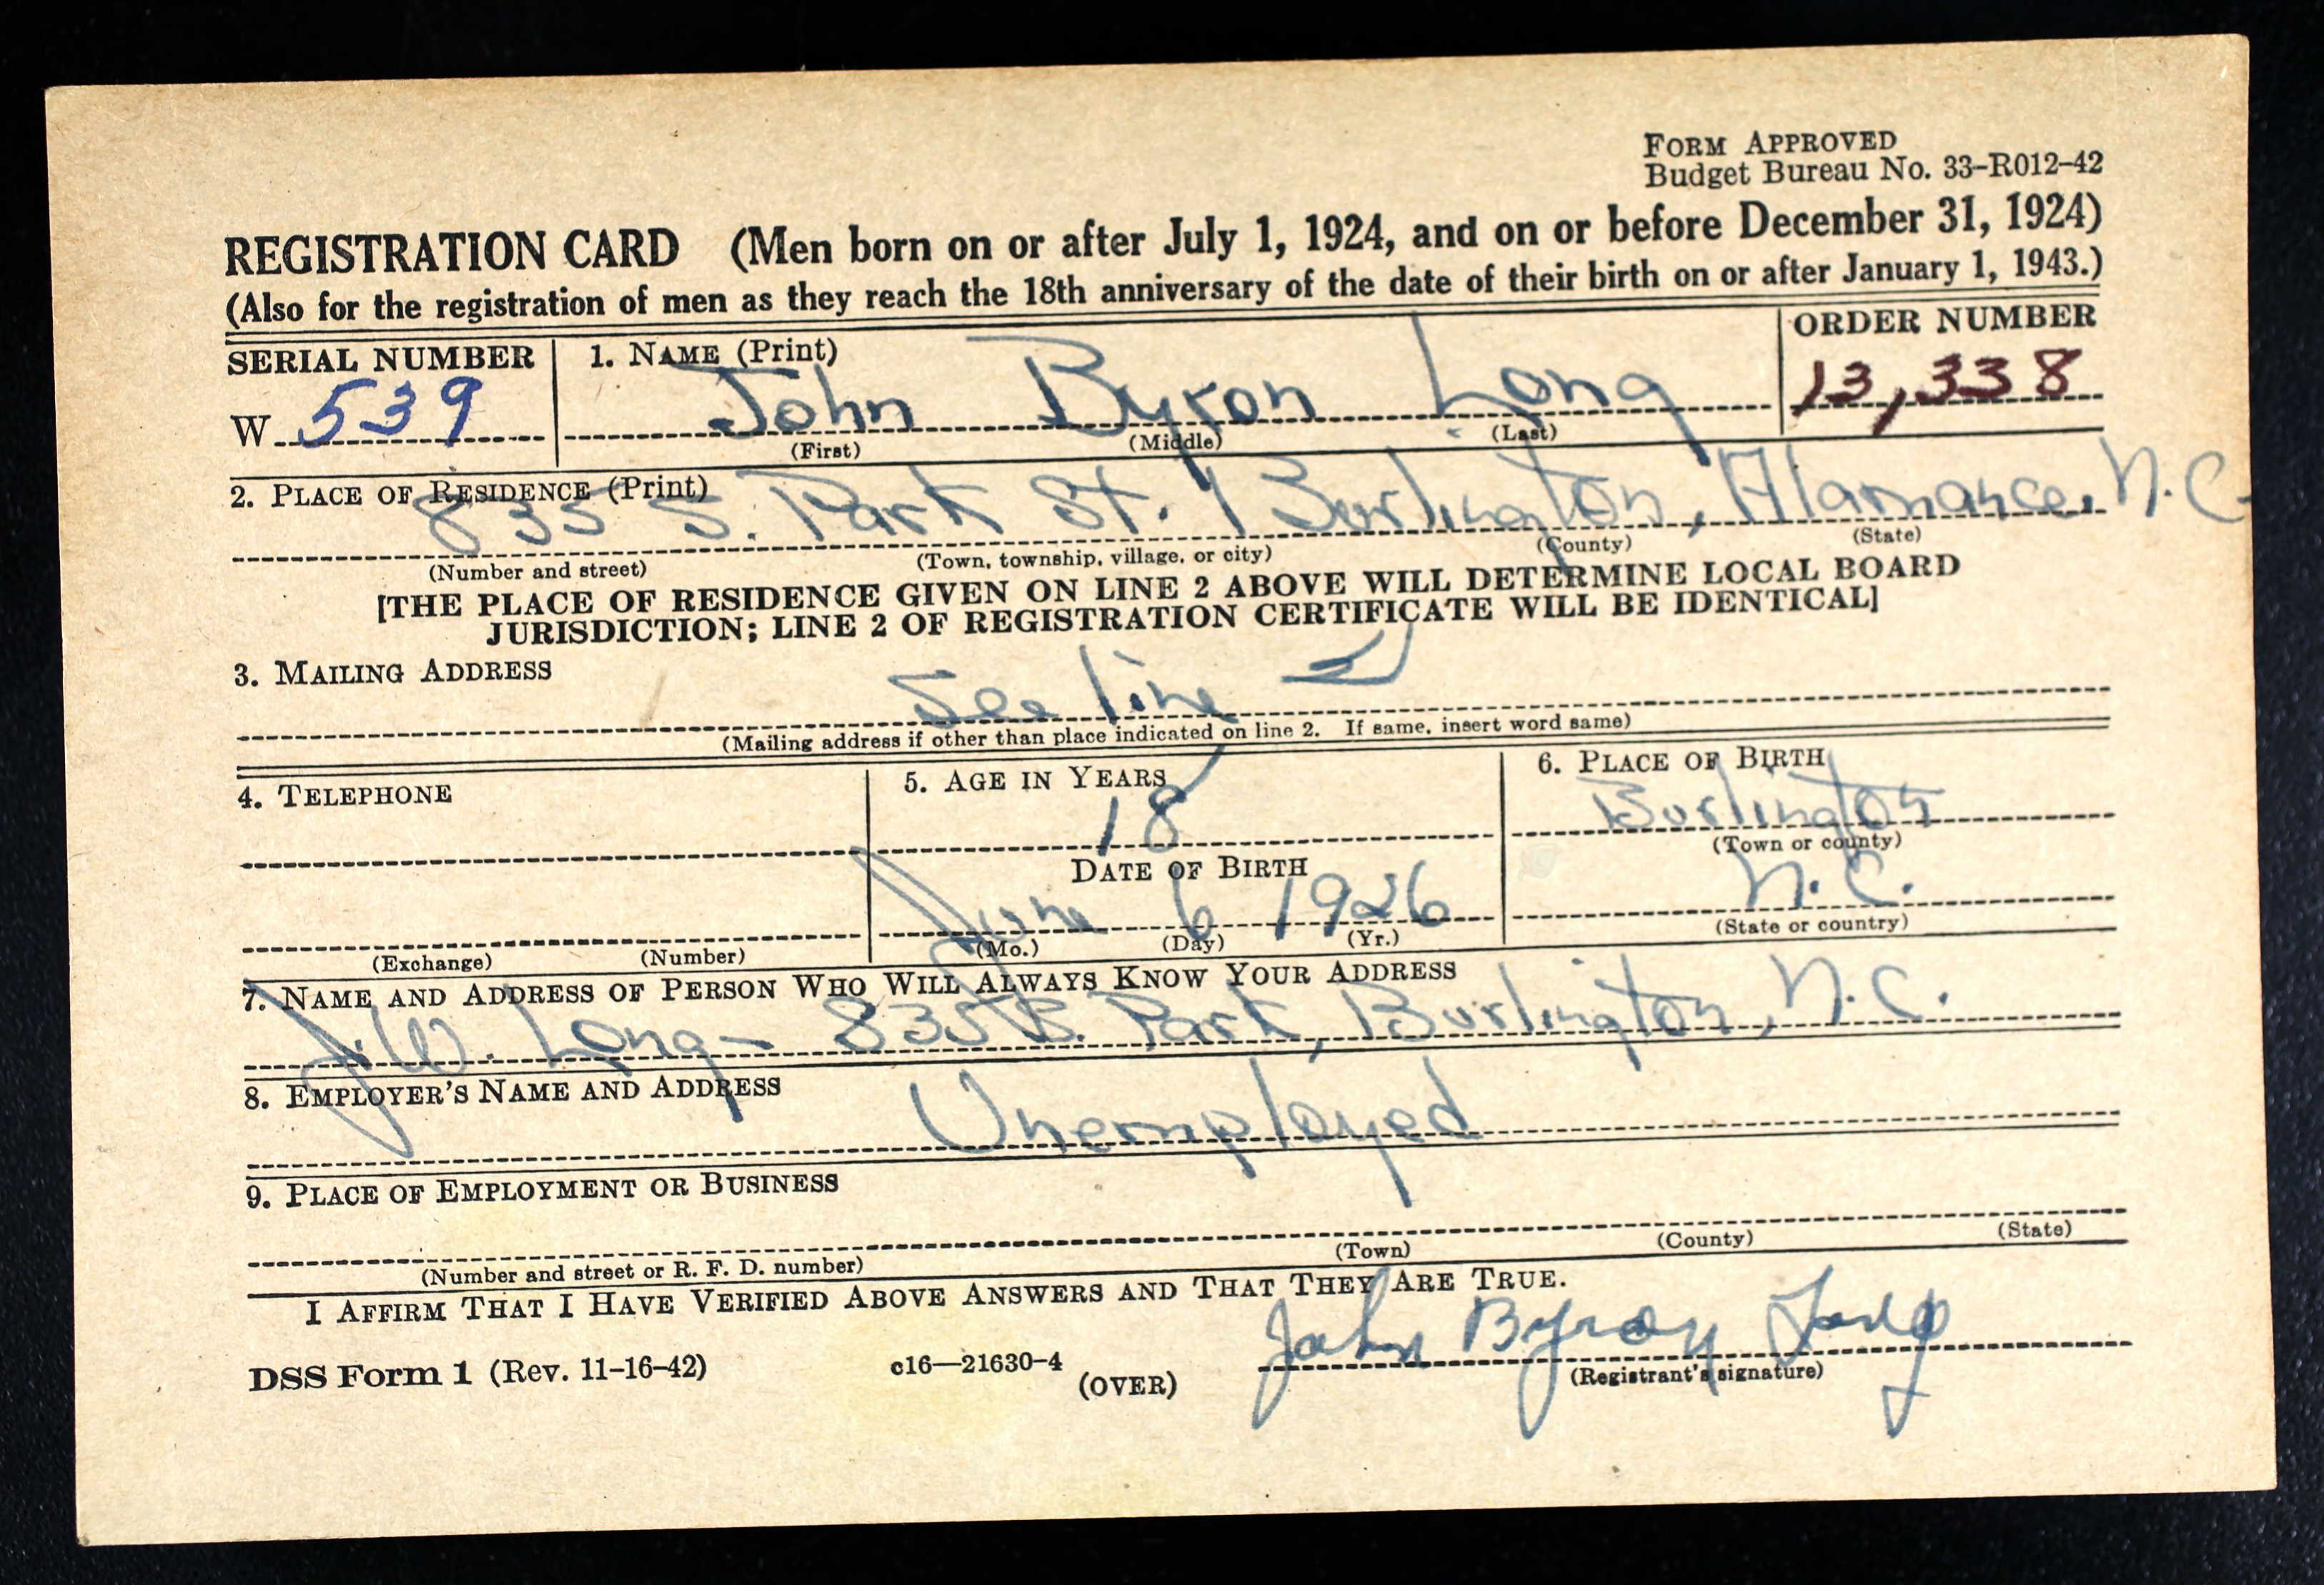 FORM APPROVED
Budget Bureau No. 33-R012-42
REGISTRATION CARD (Men born on or after July 1, 1924, and on or before December 31, 1924)
(Also for the registration of men as they reach the 18th anniversary of the date of their birth on or after January 1, 1943.)
SERIAL NUMBER
W 539
1. NAME (Print)
John Byron Long
(First) (Middle) (Last)
ORDER NUMBER
13,338
2. PLACE OF RESIDENCE (Print)
835 S. Park St. Burlington, Alamance, N.C.
(Number and street) (Town, township, village, or city) (County) (State)
[THE PLACE OF RESIDENCE GIVEN ON LINE 2 ABOVE WILL DETERMINE LOCAL BOARD
JURISDICTION; LINE 2 OF REGISTRATION CERTIFICATE WILL BE IDENTICAL]
3. MAILING ADDRESS
See line 2
(Mailing address if other than place indicated on line 2. If same, insert word same)
4. TELEPHONE
(Exchange) (Number)
5. AGE IN YEARS
18
DATE OF BIRTH
June 6 1926
(Mo.) (Day) (Yr.)
6. PLACE OF BIRTH
Burlington
(Town or county)
N.C.
(State or country)
7. NAME AND ADDRESS OF PERSON WHO WILL ALWAYS KNOW YOUR ADDRESS
J.W. Long - 835 S. Park, Burlington, N.C.
8. EMPLOYER'S NAME AND ADDRESS
Unemployed
9. PLACE OF EMPLOYMENT OR BUSINESS
(Number and street or R. F. D. number) (Town) (County) (State)
I AFFIRM THAT I HAVE VERIFIED ABOVE ANSWERS AND THAT THEY ARE TRUE.
John Byron Long
DSS Form 1 (Rev. 11-16-42) c16—21630-4 (OVER) (Registrant's signature)